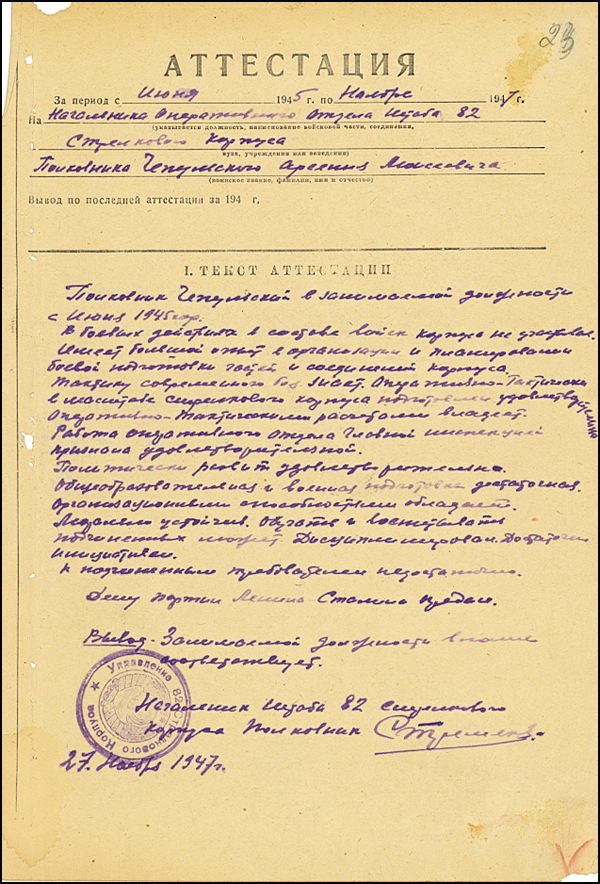 23
АТТЕСТАЦИЯ
За период с Июня 1945 г. по Ноябрь 1947 г.
На Начальника Оперативного отдела Штаба 82
(указывается должность, наименование войсковой части, соединения,
Стрелкового Корпуса
вуза, учреждения или заведения)
Полковника Чепумского Арсения Моисеевича
(воинское звание, фамилия, имя и отчество)
Вывод по последней аттестации за 194 г,
I. ТЕКСТ АТТЕСТАЦИИ
Полковник Чепумский в занимаемой должности
с Июня 1945 года.
В боевых действиях в составе войск корпуса не участвовал.
Имеет большой опыт в организации и планировании
боевой подготовки частей и соединений корпуса.
Тактику современного боя знает. Оперативно-Тактически
в масштабе стрелкового корпуса подготовлен удовлетворительно
Оперативно-Тактическими расчетами владеет.
Работа оперативного отдела Главной инспекцией
признана удовлетворительной.
Политически развит удовлетворительно.
Общеобразовательная и военная подготовка достаточная.
Организационными способностями обладает.
Морально устойчив. Обучать и воспитывать
подчиненных может. Дисциплинирован. Достаточно
инициативен.
К подчиненным требователен недостаточно.
Делу партии Ленина Сталина предан.
Вывод - Занимаемой должности вполне
соответствует.
Начальник Штаба 82 стрелкового
Корпуса Полковник
27. Ноября 1947г.
Управление 82 Стрелкового Корпуса